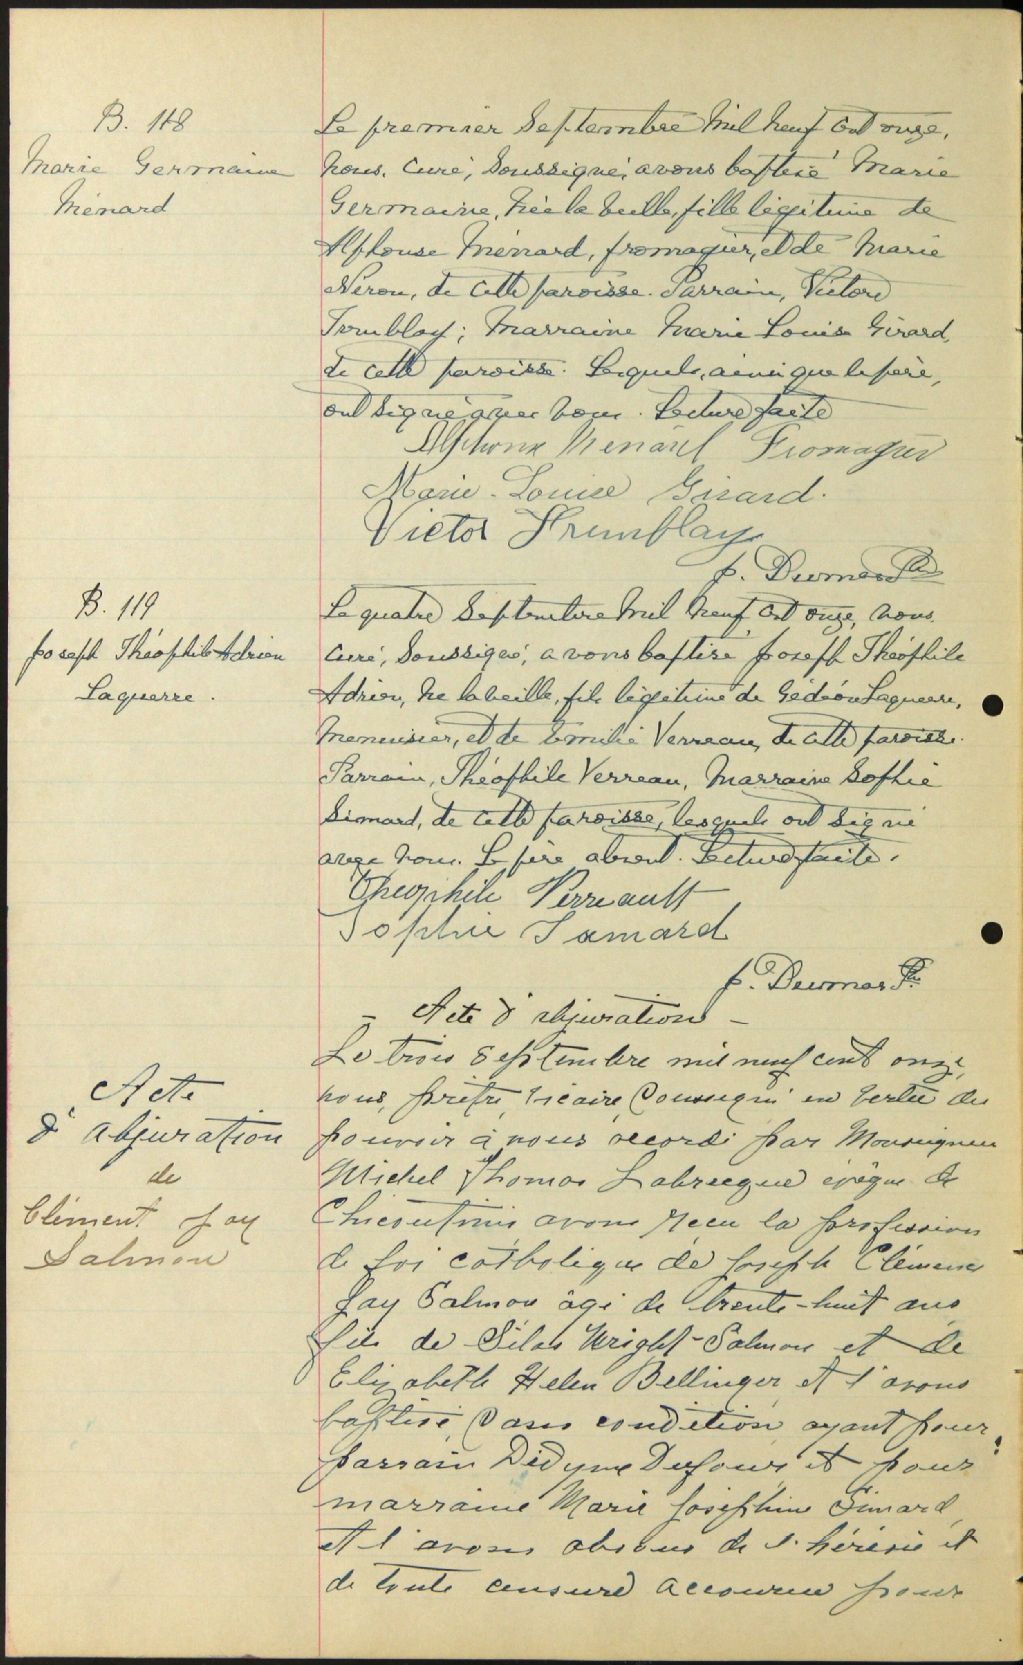 B. 118
Marie Germaine
Ménard
Le premier Septembre Mil Neuf Cent onze,
nous, Curé, Soussigné, avons baptisé Marie
Germaine, Née la Veille, fille légitime de
Alphonse Ménard, fromagier, et de Marie
Néron, de cette paroisse. Parrain, Victor
Tremblay; Marraine Marie Louise Girard,
de cette paroisse. Lesquels, ainsi que le père,
ont signé avec nous. Lecture faite
Alphonse Menard Fromagier
Marie-Louise Girard.
Victor Tremblay
J. Dumas Ptre
B. 119
Joseph Théophile Adrien
Laguerre.
Le quatre Septembre Mil Neuf Cent onze, nous
Curé, Soussigné, avons baptisé Joseph Théophile
Adrien, Né la veille, fils légitime de Gédéon Laguerre,
Menuisier, et de Emilie Verreau, de cette paroisse.
Parrain, Théophile Verreau, Marraine Sophie
Simard, de cette paroisse, lesquels ont signé
avec nous. Le père absent. Lecture faite.
Theophile Verreault
Sophie Samard
J. Dumas Ptre
- Acte d'abjuration -
Acte
d'abjuration
de
Clément Jay
Salmon
Le trois Septembre mil neuf cent onze,
nous, prêtre, Vicaire, Soussigné en vertu du
pouvoir à nous accordé par Monseigneur
Michel Thomas Labrecque évêque de
Chicoutimi avons reçu la profession
de foi catholique de Joseph Clément
Jay Salmon âgé de trente-huit ans
fils de Silas Wright-Salmon et de
Elizabeth Helen Bellinger et l'avons
baptisé, sans condition, ayant pour
parrain Didyme Dufour, et pour
marraine Marie Joséphine Simard,
et l'avons absous de l'hérésie et
de toute censure encourue pour